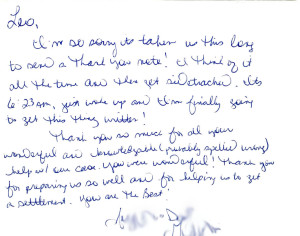 Leo,
I'm so sorry its taken us this long
to send a thank you note! I think of it
all the time and then get sidetracked. Its
6:23am, just woke up and I'm finally going
to get this thing written!
Thank you so much for all your
wonderful and knowledgable (probably spelled wrong)
help w/ our case. You were wonderful! Thank you
for preparing us so well and for helping us to get
a settlement. You are the Best!